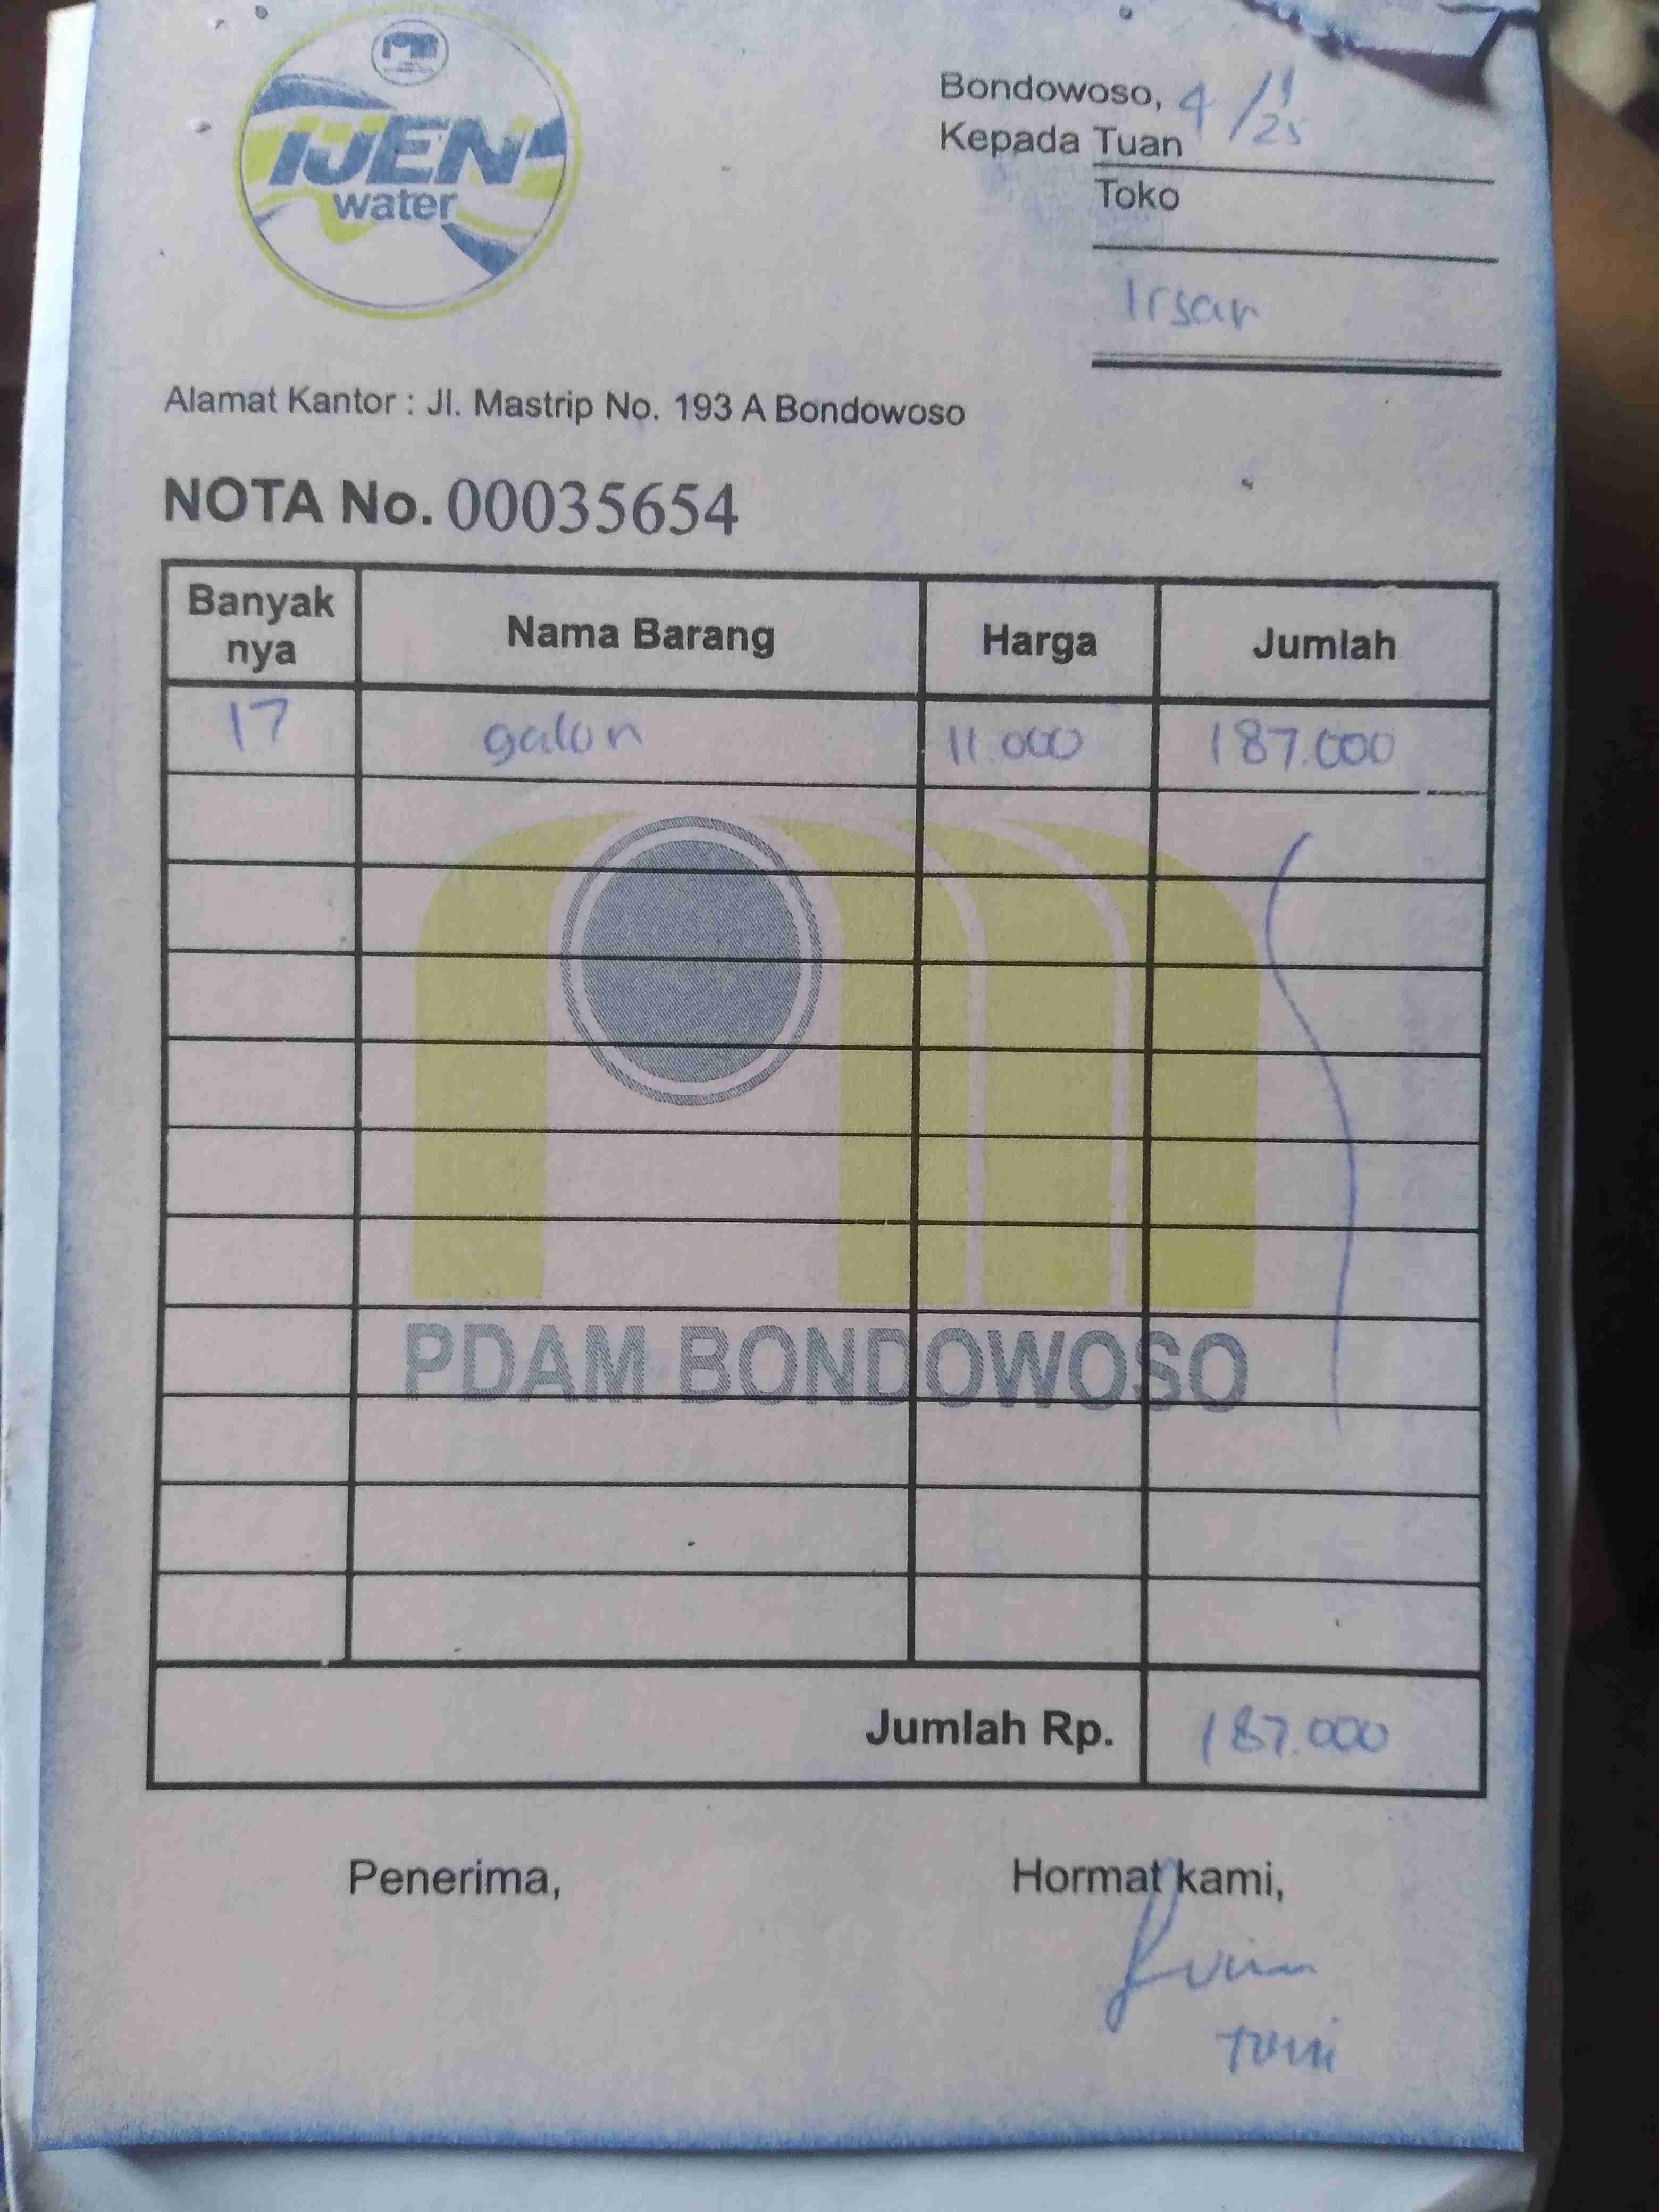 IJEN
water
Bondowoso, 4/11/25
Kepada Tuan
Toko
Irsan
Alamat Kantor : Jl. Mastrip No. 193 A Bondowoso
NOTA No. 00035654
Banyak nya Nama Barang Harga Jumlah
17 galon 11.000 187.000
PDAM BONDOWOSO
Jumlah Rp. 187.000
Penerima, Hormat kami,